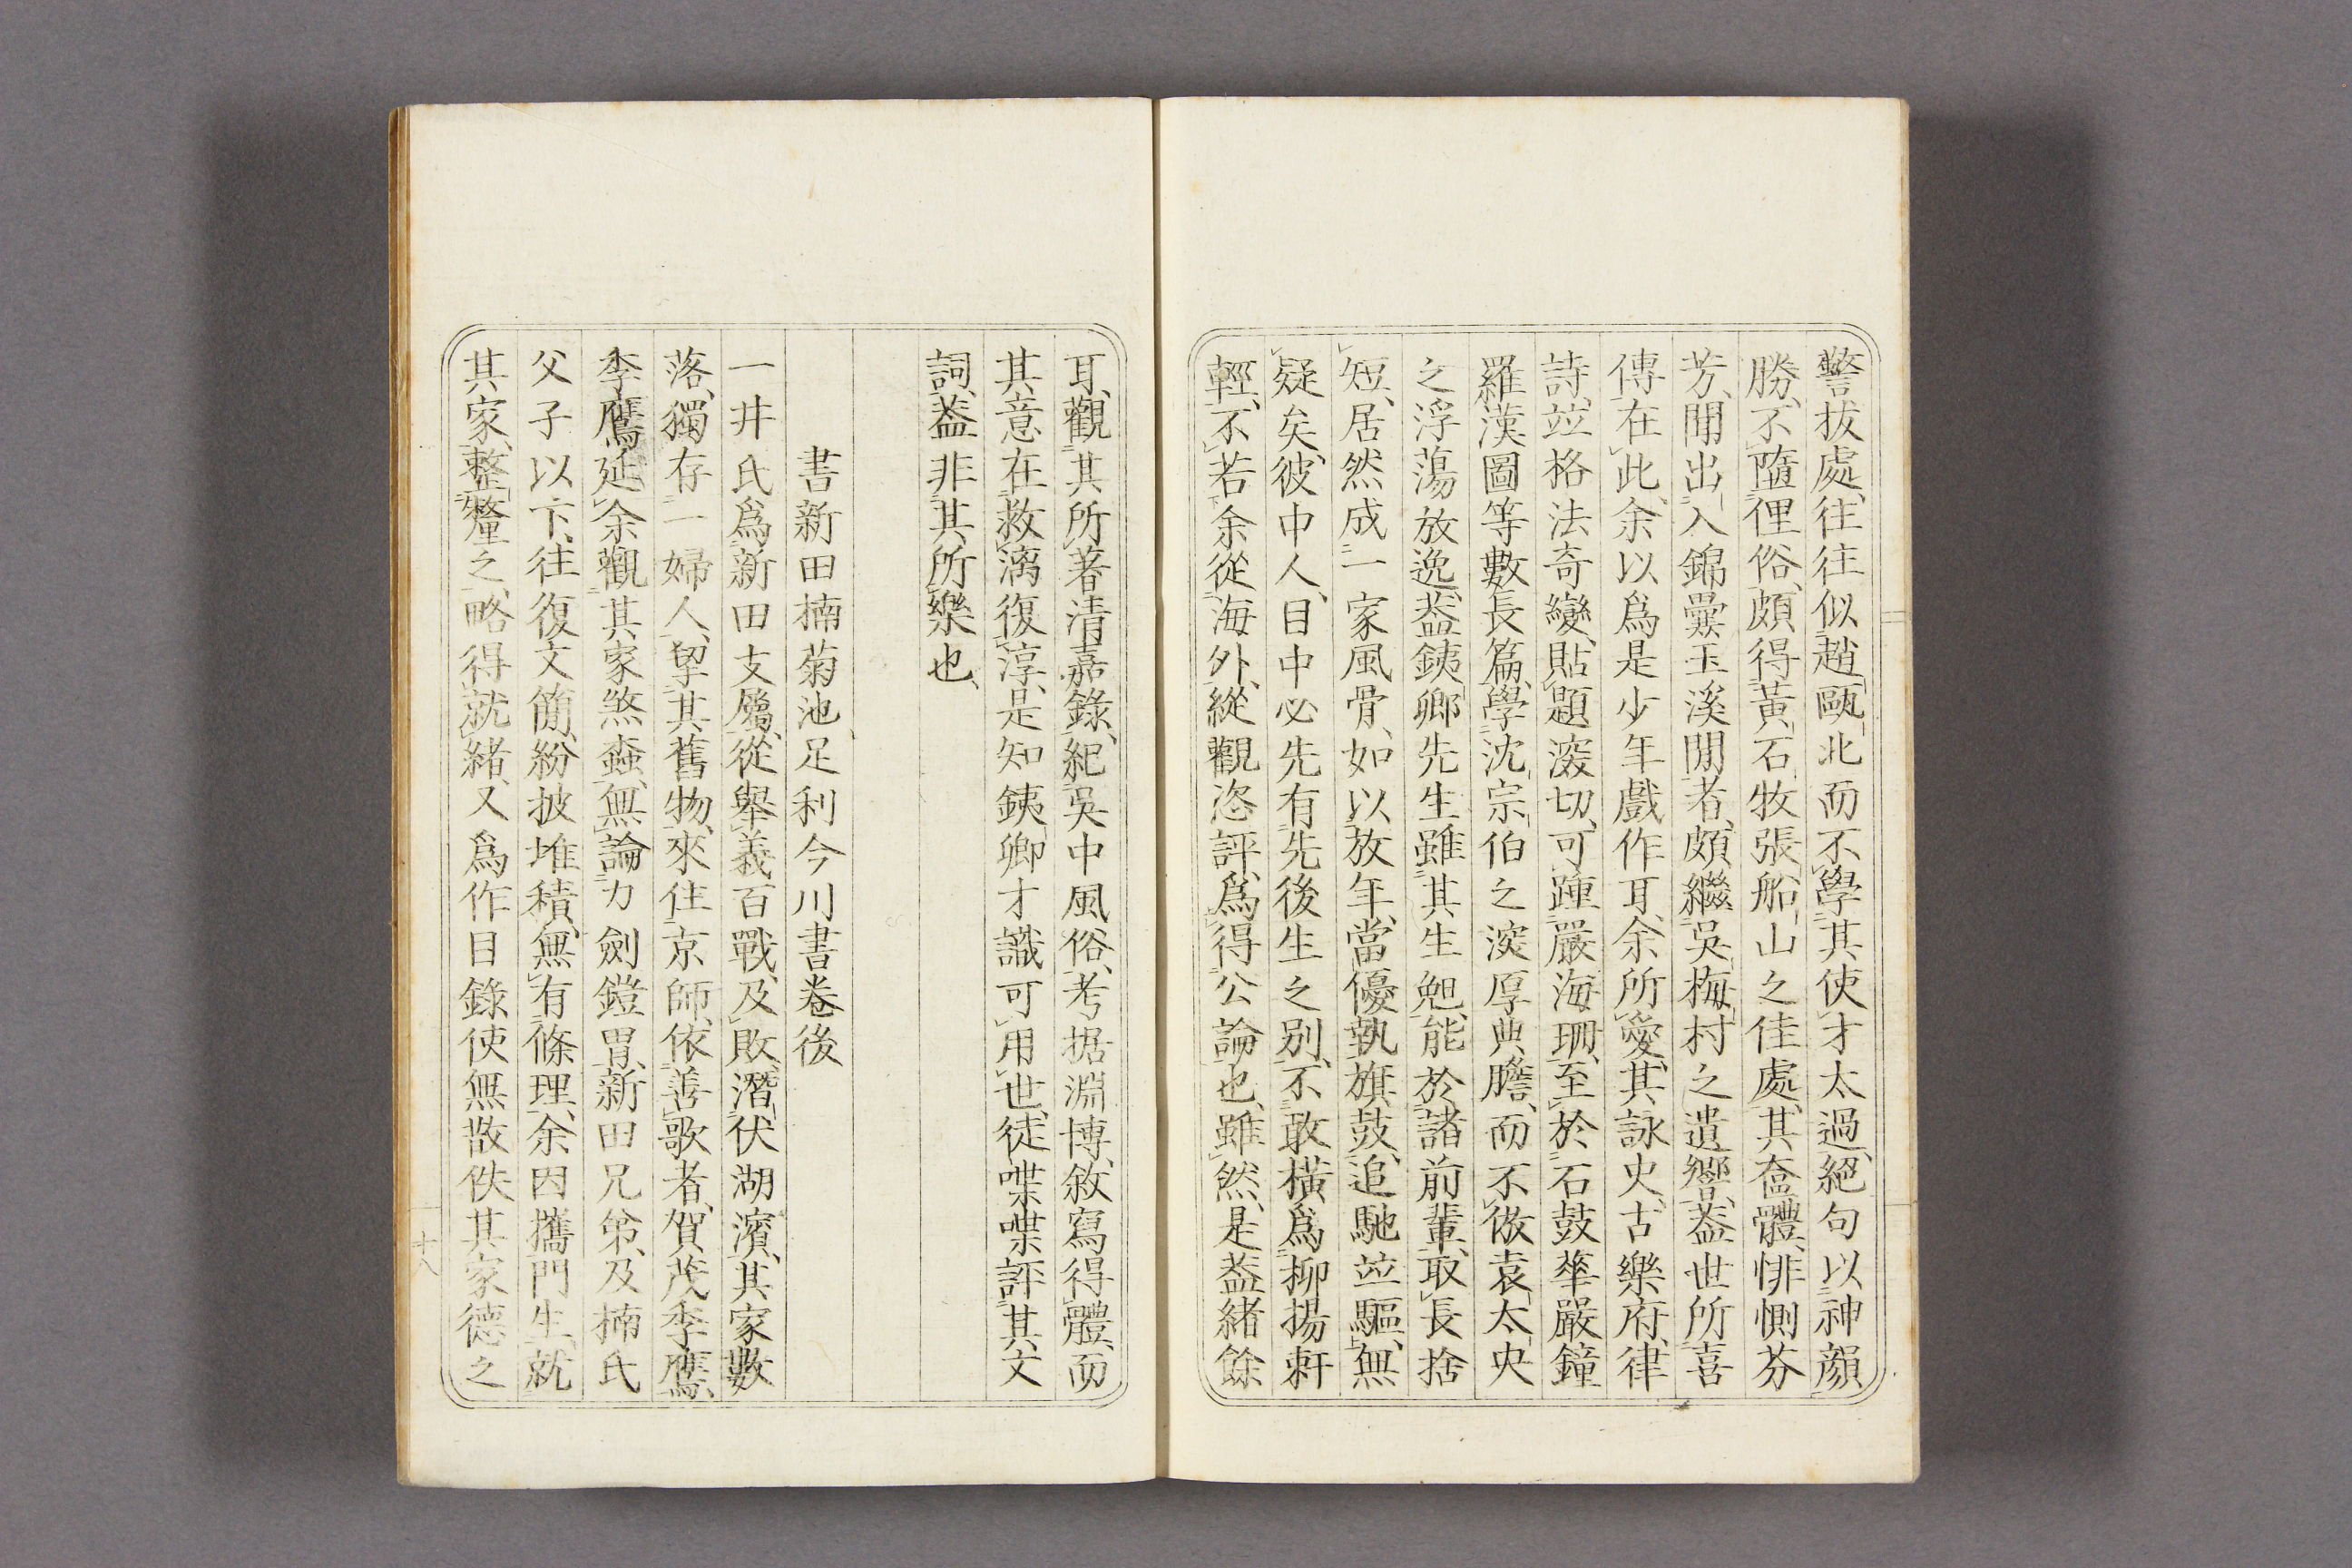 警拔處、往往似趙甌北而不學其使才太過、絕句以神韻
勝、不墮俚俗、頗得黃石牧張船山之佳處、其奩體、悱惻芬
芳、閒出入錦囊玉溪閒者、頗繼吳梅村之遺響、蓋世所喜
傳在此、余以爲是少年戲作耳、余所愛、其詠史、古樂府、律
詩、竝格法奇變、貼題深切、可踵嚴海珊、至於石鼓華嚴鐘
羅漢圖等數長篇、學沈宗伯之深厚典贍、而不倣袁太史
之浮蕩放逸、蓋銕卿先生雖其生晚、能於諸前輩、取長捨
短、居然成一家風骨、如以放年、當優執旗鼓、追馳竝驅、無
疑矣、彼中人、目中必先有先後生之別、不敢橫爲抑揚軒
輕、不若余從海外、縱觀恣評、爲得公論也、雖然、是蓋緒餘
耳、觀其所著清嘉錄、紀吳中風俗、考据淵博、敘寫得體、而
其意在救漓復淳、是知銕卿才識可用世、徒喋喋評其文
詞、蓋非其所樂也、
書新田楠菊池、足利今川書卷後
一井氏爲新田支屬、從舉義百戰、及敗、潛伏湖濱、其家數
落、獨存一婦人、挈其舊物、來住京師、依善歌者、賀茂季鷹、
季鷹延余觀其家煞蠧、無論刀劍鎧冑、新田兄弟、及楠氏
父子以下、往復文簡、紛披堆積、無有條理、余因攜門生、就
其家、整釐之、略得就緒、又爲作目錄使無散佚其家德之
十八